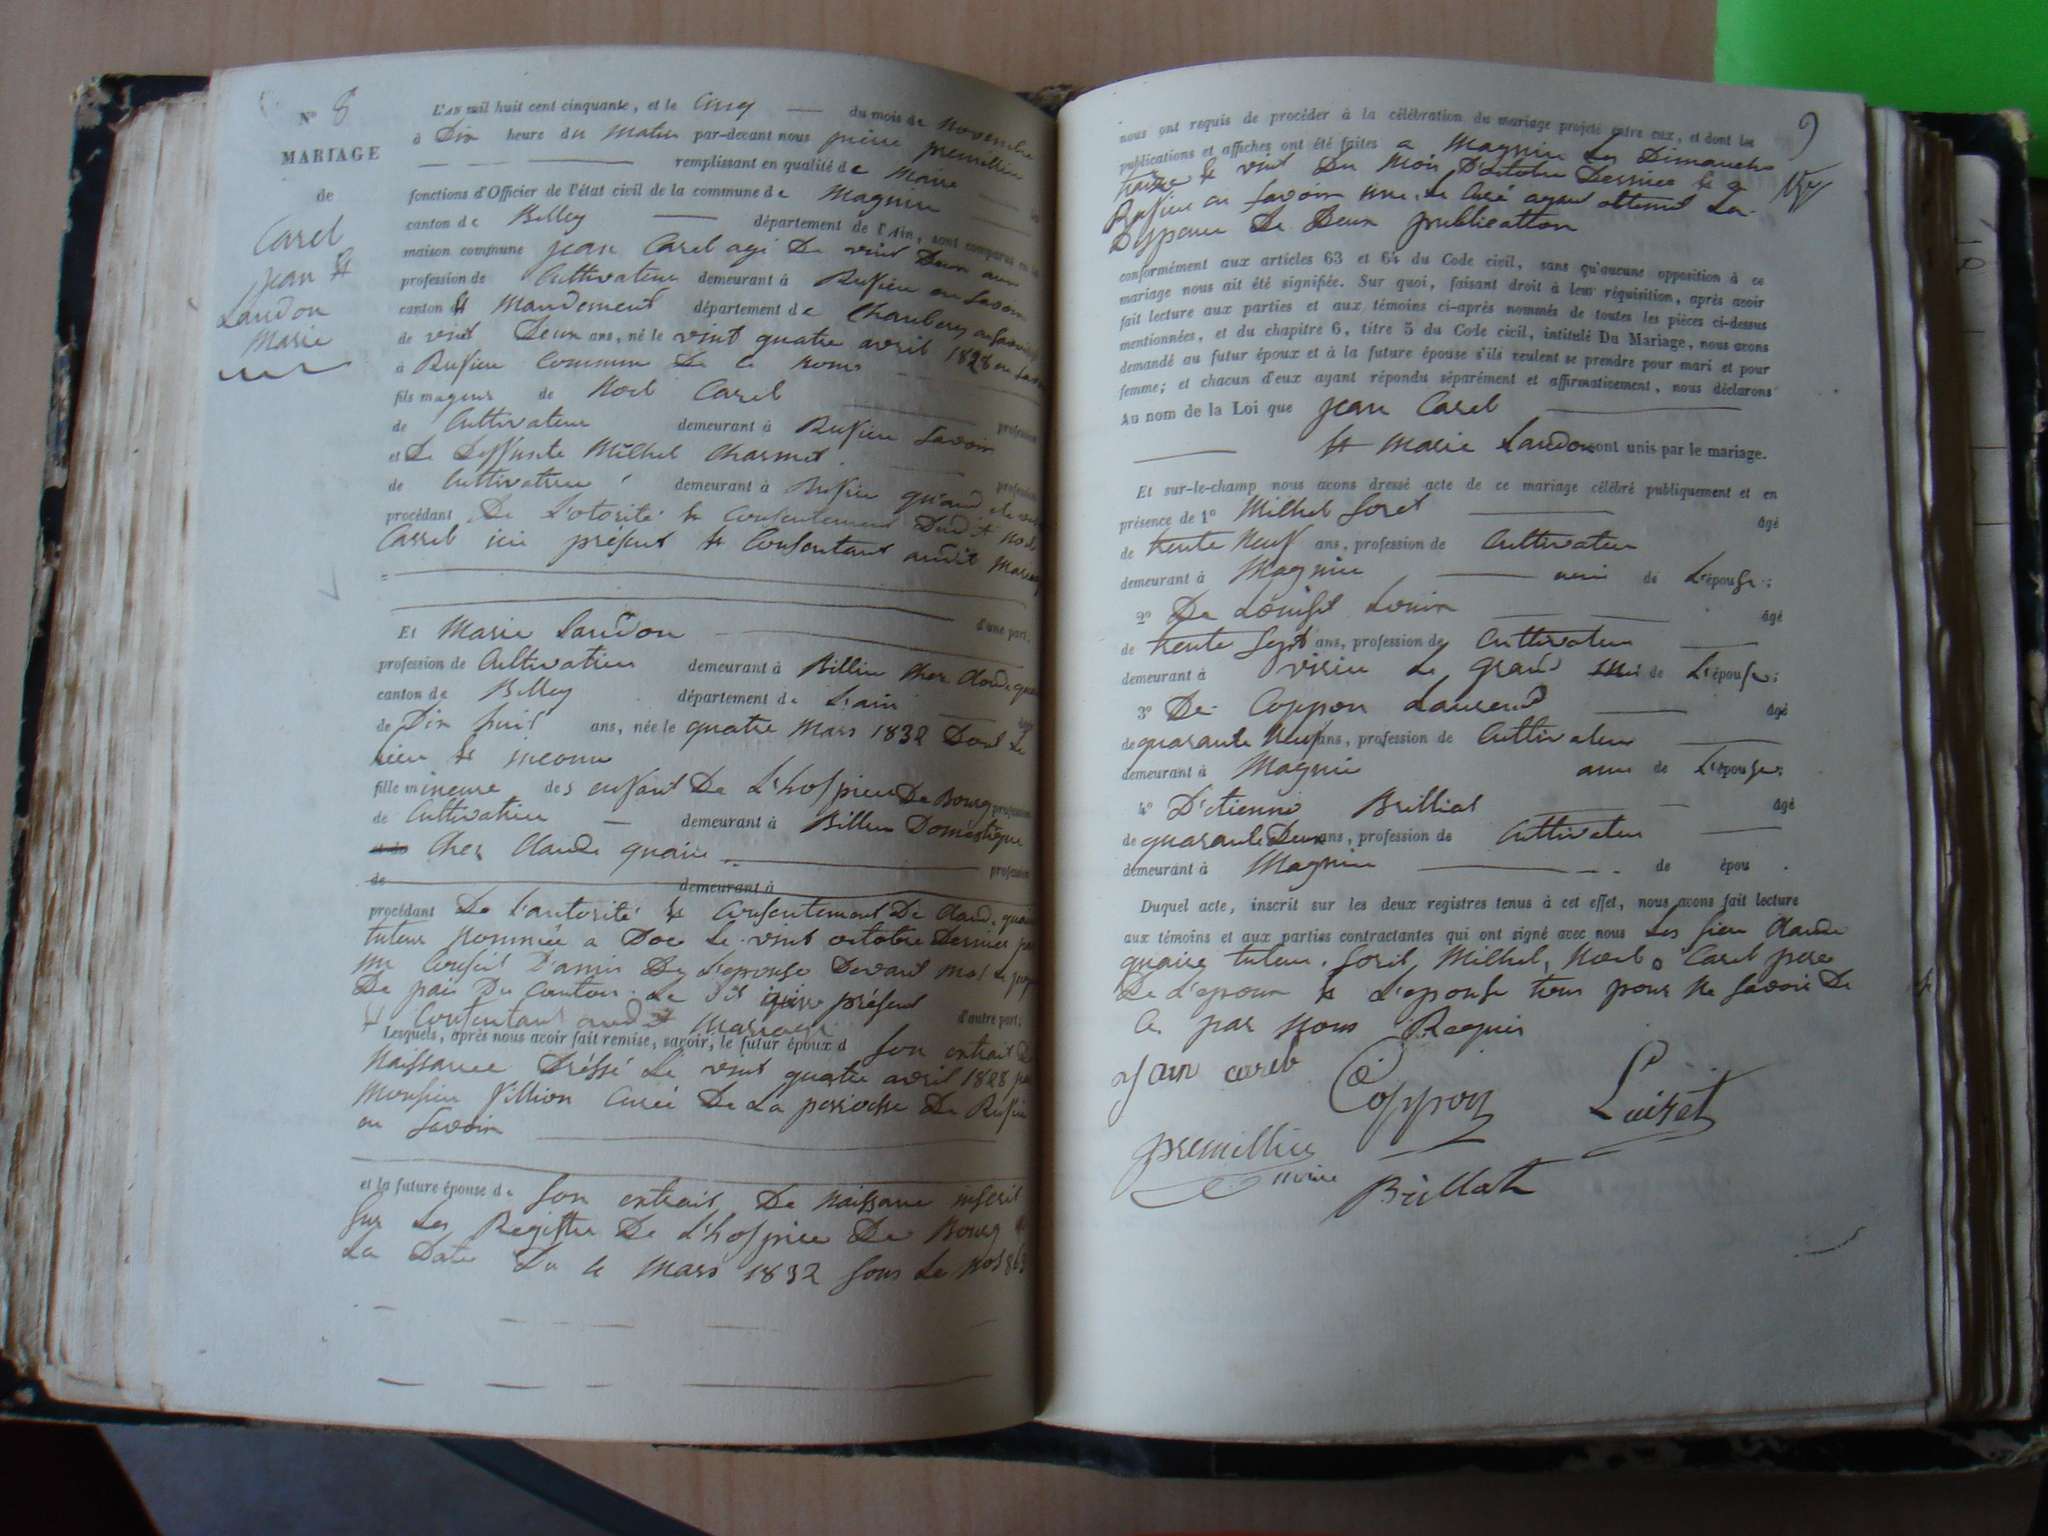 N° 8
MARIAGE
de
Carel
jean et
Landon
Marie
L'AN mil huit cent cinquante, et le cinq du mois de novembre
à Dix heure du matin par-devant nous pierre premillieu
remplissant en qualité de Maire
fonctions d'Officier de l'état civil de la commune de Magnieu
canton de Belley département de l'Ain, sont comparus en la
maison commune jean Carel agé De vint Deux ans
profession de Cultivateur demeurant à Rufieu en Savoix
canton et mandement département de Chambery en savoix
de vint Deux ans, né le vint quatre avril 1828 en
à Rufieu Commune De Ce nom
fils mageur de Noel Carel
de Cultivateur demeurant à Rufieu Savoix profession
et De Deffunte Milhel Charmet
de Cultivatrice demeurant à Rufieu quand profession
procédant De L'otorité et Consentement Dudit Noel
Carrel ici présent et Consentant audit Mariage
d'une part.
Et Marie Landon
profession de Cultivatrice demeurant à Billieu chez Claude quaire
canton de Belley département de L'ain âgé
de Dix huit ans, née le quatre Mars 1832 Dont Le
lieu et inconu
fille mineure des enfant De L'hospice De Bourg profession
de Cultivatrice demeurant à Billieu Domestique
et de Chez Claude quaire profession
de demeurant à
procédant De L'autorité et Consentement De Claude quaire
tuteur nommée a Doc Le vint octobre Dernier par
un Conseil D'amis De L'epouse Devant Mr Le juge
De paix Du Canton. Le Dit quaire présent
et Consentant audit Mariage d'autre part;
Lesquels, après nous avoir fait remise, savoir, le futur époux d son extrait De
Naissance Dréssé Le vint quatre avril 1828 par
Monsieur Villion Curée De La paroiche De Rufieu
en Savoix
et la future épouse de son extrait De Naissance inscrit
sur Les Registre De L'hospice De Bourg
La Date Du 4 Mars 1832 sous Le No
9
nous ont requis de procéder à la célébration du mariage projeté entre eux, et dont les
publications et affiches ont été faites a Magnieu Les Dimanche
treize et vint Du Mois D'octobre Dernier et a
Rufieu en Savoix une. Le Curé ayant obtenut La
Dispence De Deux publication
conformément aux articles 63 et 64 du Code civil, sans qu'aucune opposition à ce
mariage nous ait été signifiée. Sur quoi, faisant droit à leur réquisition, après avoir
fait lecture aux parties et aux témoins ci-après nommés de toutes les pièces ci-dessus
mentionnées, et du chapitre 6, titre 5 du Code civil, intitulé Du Mariage, nous avons
demandé au futur époux et à la future épouse s'ils veulent se prendre pour mari et pour
femme; et chacun d'eux ayant répondu séparément et affirmativement, nous déclarons
Au nom de la Loi que jean Carel
et Marie Landon sont unis par le mariage.
Et sur-le-champ nous avons dressé acte de ce mariage célébré publiquement et en
présence de 1° Milhel Goret âgé
de trente Neuf ans, profession de Cultivateur
demeurant à Magnieu ami de L'épouse;
2° De Loüiset Louis âgé
de trente Sept ans, profession de Cultivateur
demeurant à virieu Le grand ami de L'épouse;
3° De Coppon Laurend âgé
de quarante Neuf ans, profession de Cultivateur
demeurant à Magnieu ami de L'épouse;
4° D'étienne Brilliat âgé
de quarante Deux ans, profession de Cultivateur
demeurant à Magnieu de épou .
Duquel acte, inscrit sur les deux registres tenus à cet effet, nous avons fait lecture
aux témoins et aux parties contractantes qui ont signé avec nous Les sieur Claude
quaire tuteur. Goret Milhel, Noel Carel pere
De L'epoux et L'epouse tous pour Ne Savoir De
Ce par Nous Requis
Jean carel
Coppon
Luiset
premillieu
maire
Brillat